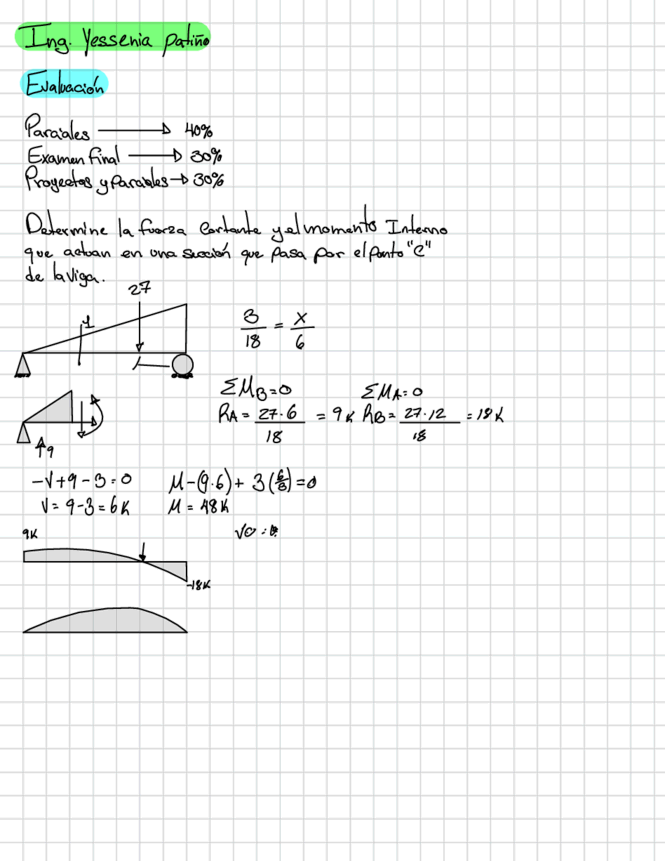 Ing. Yessenia Patiño
Evaluación
Parciales → 40%
Examen final → 30%
Proyectos y Parciales → 30%
Determine la fuerza Cortante y el momento Interno
que actuan en una sección que pasa por el punto "C"
de la viga.
27
3/18 = x/6
ΣMB=0 ΣMA=0
RA = 27·6/18 = 9K RB = 27·12/18 = 18K
9
-V+9-3=0 M-(9·6)+3(6/3)=0
V= 9-3=6K M= 48K
9K
-18K